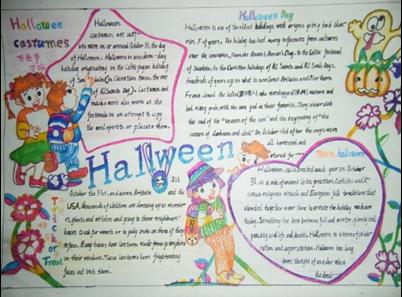 Hallowee
costumes
万圣节
Halloween
costumes are out-
fits worn on or around October 31, the day
of Halloween. Halloween is modern-day
holiday originating in the Celtic pagan holiday
of (in Christian times, the eve
of All Saints Day). Costumes and
masks were also worn at the
festivals in an attempt to
the evil spirits or placate them.
Halloween Day
Halloween is one of the oldest holidays with origins going back
of years. The holiday has had many influences from cultures
over the centuries. From the Roman's Day, to the Celtic festival
of Samhain, to the Christian holidays of All Saints and All Souls Days.
Hundreds of years ago in what is now Great Britain and Northern
France lived the Celts. The Celts worshipped nature and
had many gods, with the sun god as their favorite. They celebrated
the end of the "season of the sun" and the beginning of "the
season of darkness and cold." On October 31st after the crops were
all harvested and
stored for
Halloween
October the 31st, and across Britain and the
USA, thousands of children are dressing up as
ghosts and witches and going to their neighbours'
houses to ask for sweets or to play tricks on them if they
refuse. Many houses have lanterns made from pumpkins
in their windows. These lanterns have frightening
faces cut into them.
Trick or Treat
This is halloween
Halloween, celebrated each year on October
31, is a mix of ancient Celtic practices, Catholic and
religious rituals and European folk traditions that
blended together over time to create the holiday we know
today. Straddling the line between fall and winter, plenty and
paucity and life and death, Halloween is a time of
and superstition. Halloween has long
been thought of as a day when
the dead